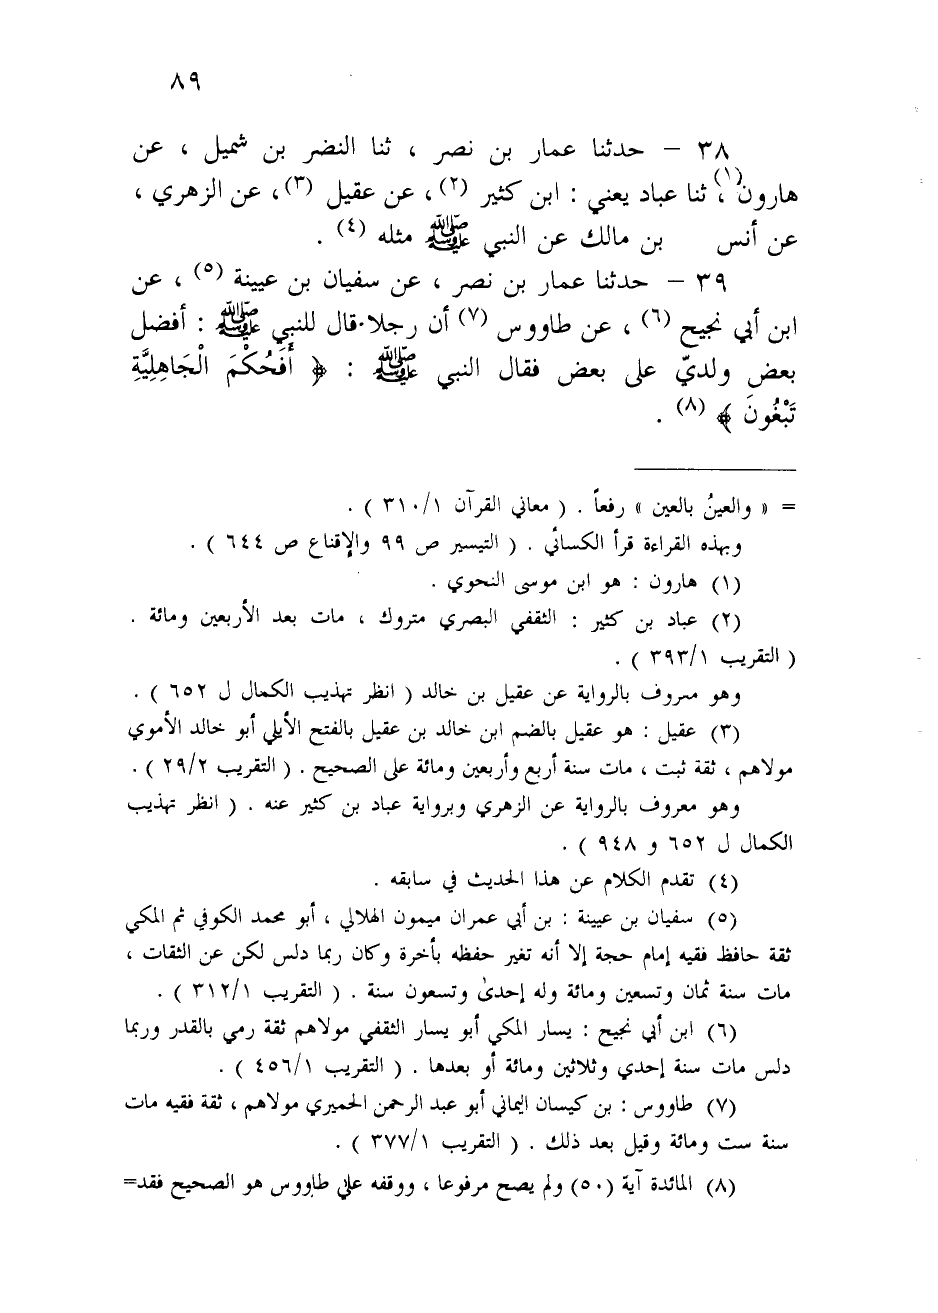 ٨٩
٣٨ - حدثنا عمار بن نصر ، ثنا النضر بن شميل ، عن
هارون (١) ، ثنا عباد يعني : ابن كثير (٢) ، عن عقيل (٣) ، عن الزهري ،
عن أنس بن مالك عن النبي ﷺ مثله (٤) .
٣٩ - حدثنا عمار بن نصر ، عن سفيان بن عيينة (٥) ، عن
ابن أبي نجيح (٦) ، عن طاووس (٧) أن رجلا قال للنبي ﷺ : أفضل
بعض ولديّ على بعض فقال النبي ﷺ : ﴿ أَفَحُكْمَ الْجَاهِلِيَّةِ
تَبْغُونَ ﴾ (٨) .
= « والعينُ بالعين » رفعاً . ( معاني القرآن ٣١٠/١ ) .
وبهذه القراءة قرأ الكسائي . ( التيسير ص ٩٩ والإقناع ص ٦٤٤ ) .
(١) هارون : هو ابن موسى النحوي .
(٢) عباد بن كثير : الثقفي البصري متروك ، مات بعد الأربعين ومائة .
( التقريب ٣٩٣/١ ) .
وهو معروف بالرواية عن عقيل بن خالد ( انظر تهذيب الكمال ل ٦٥٢ ) .
(٣) عقيل : هو عقيل بالضم ابن خالد بن عقيل بالفتح الأيلي أبو خالد الأموي
مولاهم ، ثقة ثبت ، مات سنة أربع وأربعين ومائة على الصحيح . ( التقريب ٢٩/٢ ) .
وهو معروف بالرواية عن الزهري وبرواية عباد بن كثير عنه . ( انظر تهذيب
الكمال ل ٦٥٢ و ٩٤٨ ) .
(٤) تقدم الكلام عن هذا الحديث في سابقه .
(٥) سفيان بن عيينة : بن أبي عمران ميمون الهلالي ، أبو محمد الكوفي ثم المكي
ثقة حافظ فقيه إمام حجة إلا أنه تغير حفظه بأخرة وكان ربما دلس لكن عن الثقات ،
مات سنة ثمان وتسعين ومائة وله إحدىٰ وتسعون سنة . ( التقريب ٣١٢/١ ) .
(٦) ابن أبي نجيح : يسار المكي أبو يسار الثقفي مولاهم ثقة رمي بالقدر وربما
دلس مات سنة إحدي وثلاثين ومائة أو بعدها . ( التقريب ٤٥٦/١ ) .
(٧) طاووس : بن كيسان اليماني أبو عبد الرحمن الحميري مولاهم ، ثقة فقيه مات
سنة ست ومائة وقيل بعد ذلك . ( التقريب ٣٧٧/١ ) .
(٨) المائدة آية (٥٠) ولم يصح مرفوعا ، ووقفه علي طاووس هو الصحيح فقد=